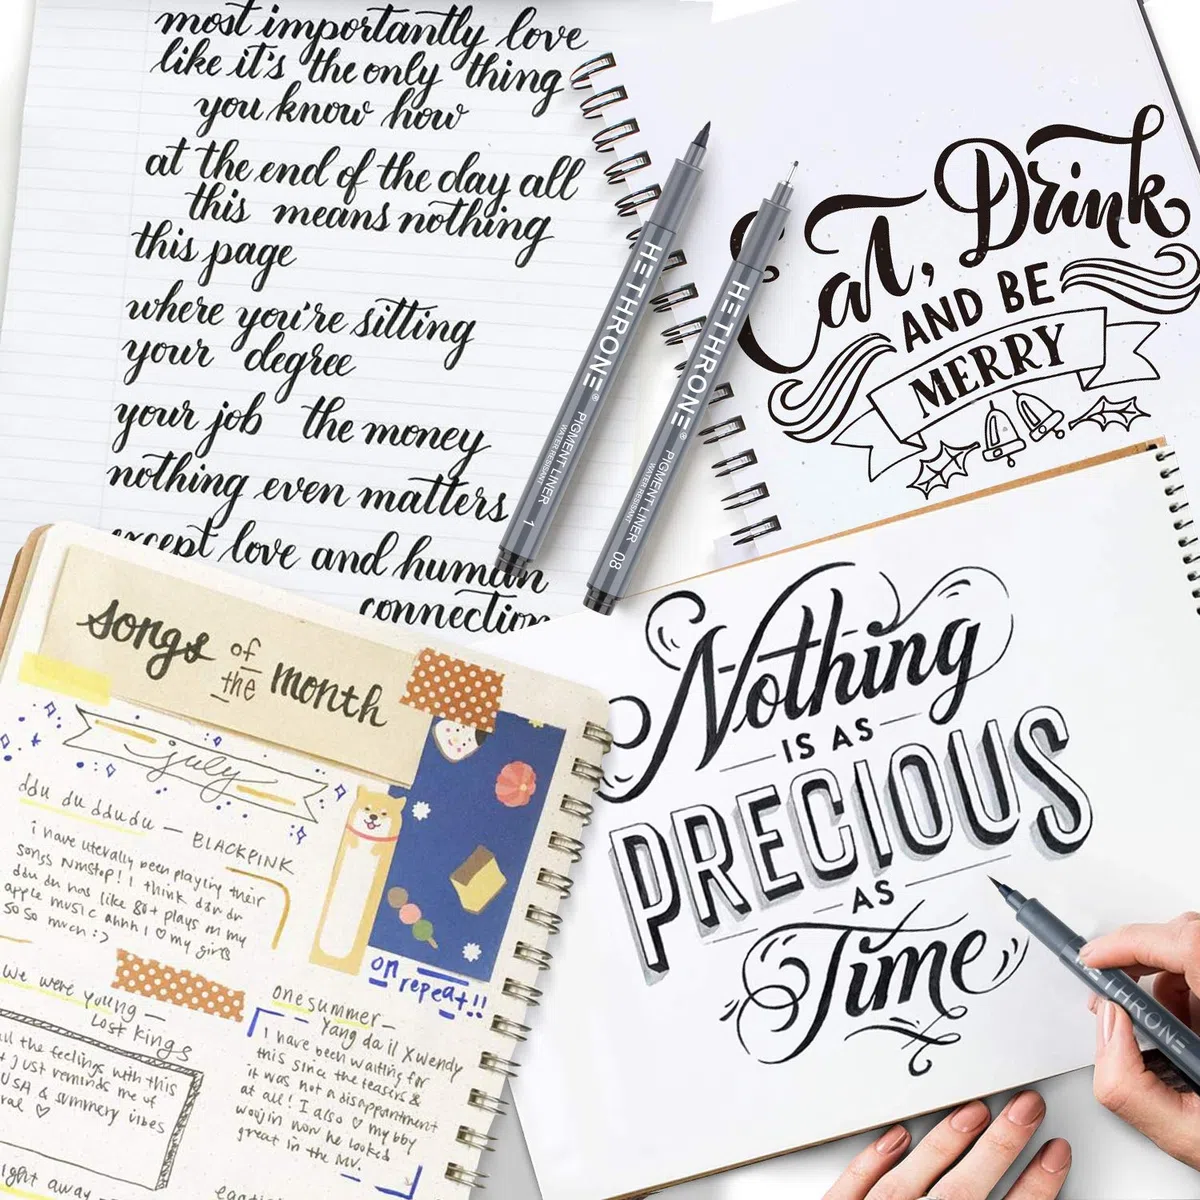 most importantly love
like it's the only thing
you know how
at the end of the day all
this means nothing
this page
where you're sitting
your degree
your job the money
nothing even matters
except love and human
connection
HETHRONE® PIGMENT LINER 1
WATER RESISSANT
HETHRONE® PIGMENT LINER 08
WATER RESISSANT
Eat, Drink
AND BE
MERRY
songs of the month
july
ddu du ddudu — BLACKPINK
i have literally been playing their
songs nonstop!! I think ddu du
ddu du has like 80+ plays on my
apple music ahhh i ♡ my girls
so so much :)
on repeat!!
We were young —
Lost Kings
all the feelings with this
t just reminds me of
USA & summery vibes
ral ♡
ight away —
one summer —
Yang da il x wendy
I have been waiting for
this since the teasers &
it was not a disappointment
at all! I also ♡ my bby
woojin now he looked
great in the MV.
Nothing
IS AS
PRECIOUS
AS
Time
HETHRONE